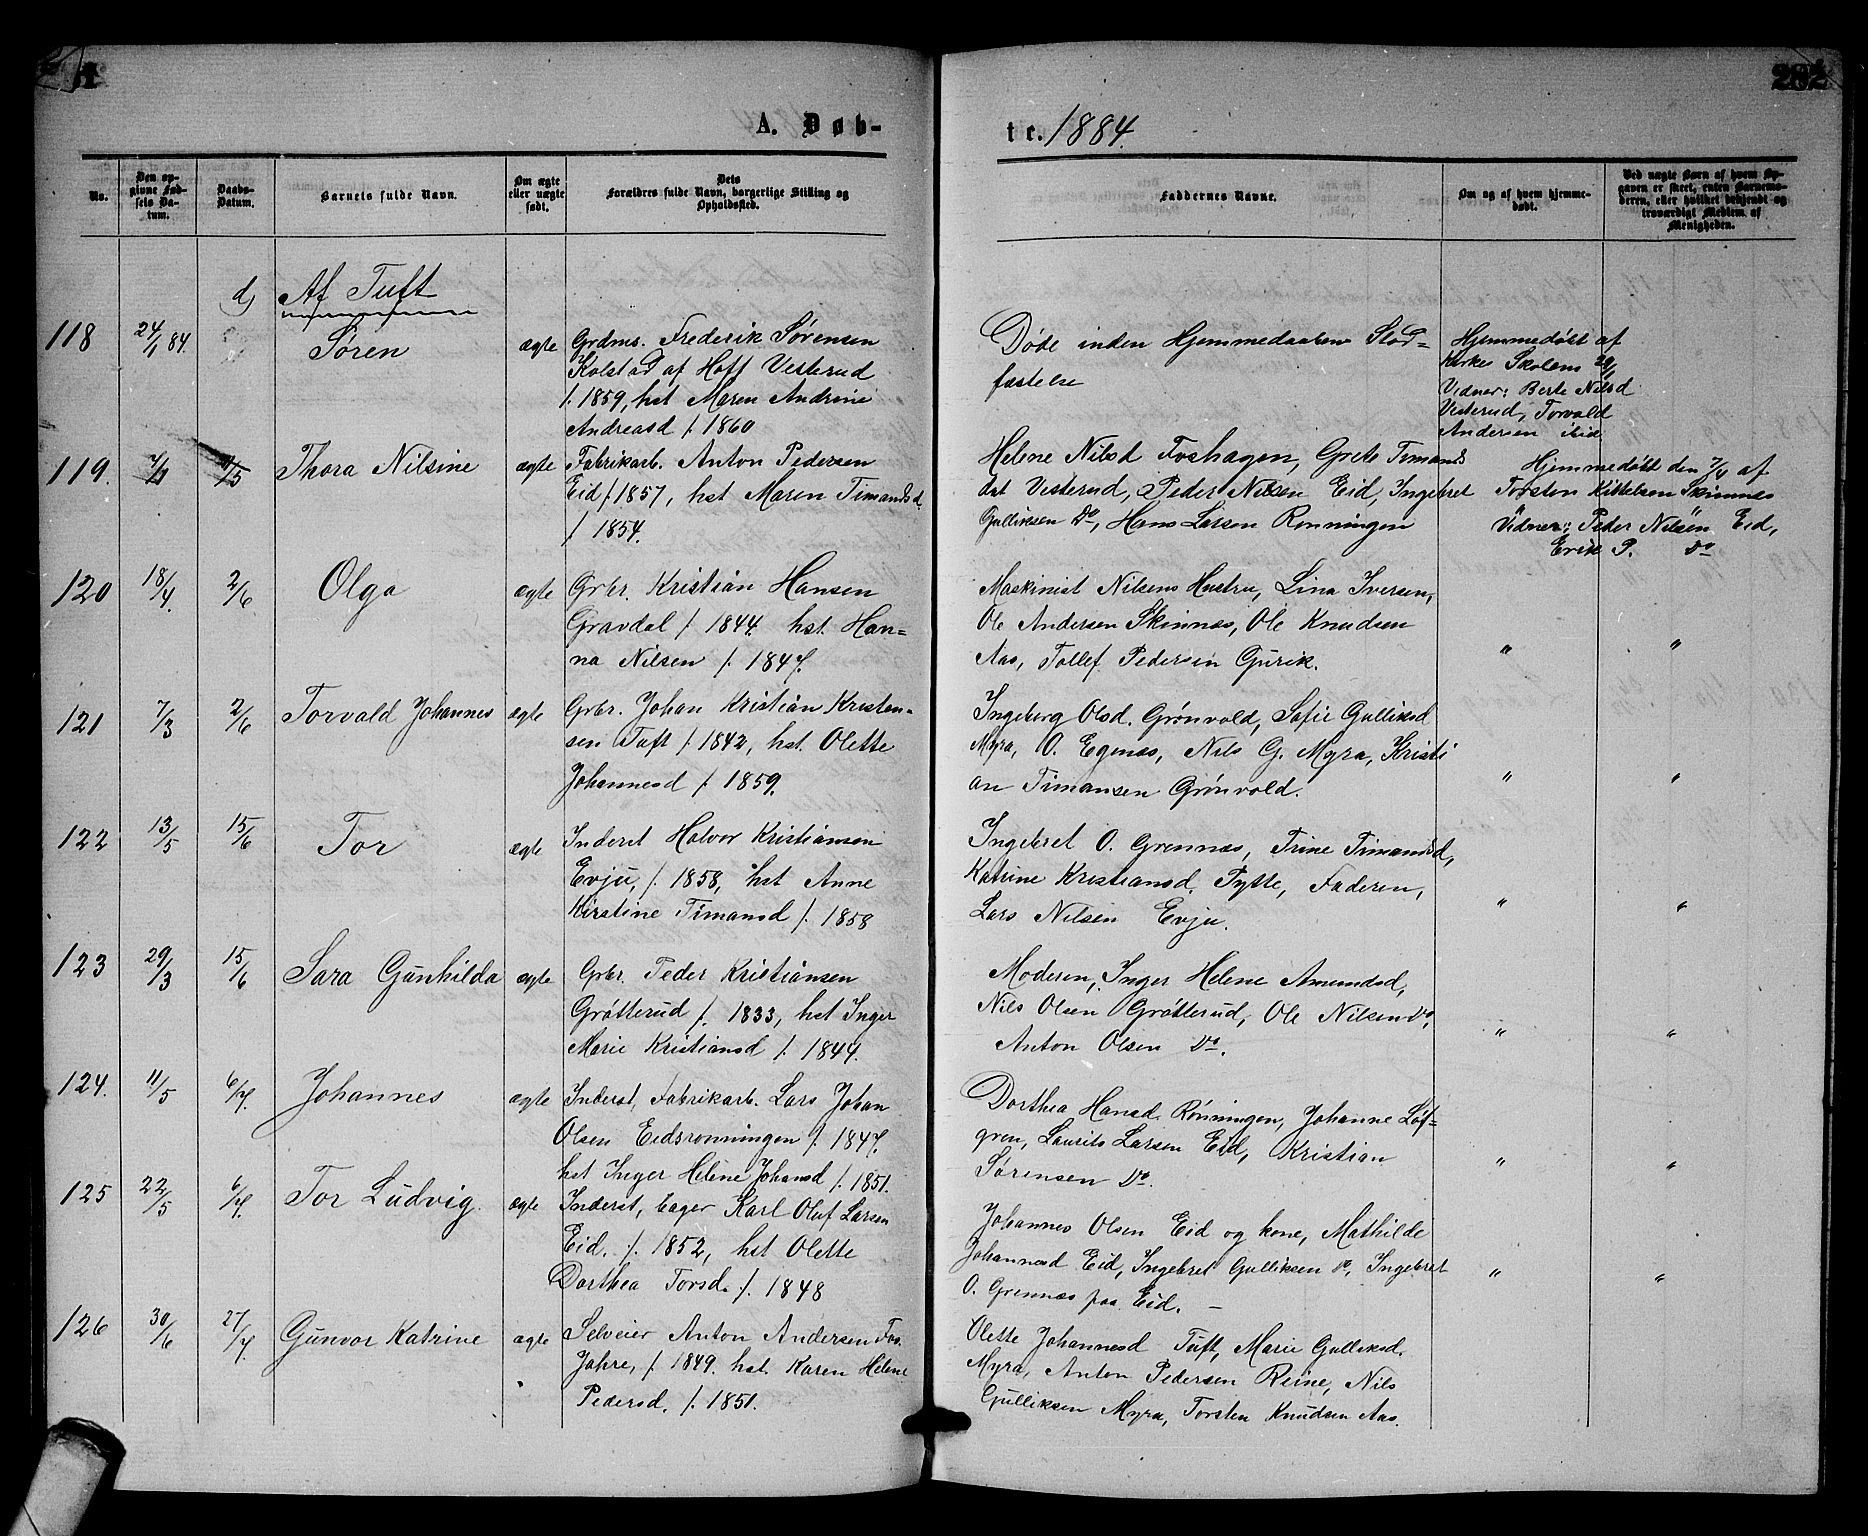 282
A. Døb-
te. 1884.
No.
Den op-
givne Fød-
sels Da-
tum.
Daabs-
Datum.
Barnets fulde Navn.
Om ægte
eller uægte
født.
Dets
Forældres fulde Navn, borgerlige Stilling og
Opholdssted.
Faddernes Navne.
Om og af hvem hjemme-
døbt.
Ved uægte Børn af hvem Op-
gaven er skeet, enten Barnemo-
deren, eller hvilket bekjendt og
troværdigt Medlem af
Menigheden.
d) Af Tuft
118 24/1 84. Søren ægte Grdms. Frederik Sørensen
Kolstad af Hoff Vesterud
f. 1859, hst Maren Andrine
Andreasd f. 1860
Døde inden Hjemmedaabens Stad-
fæstelse
Hjemmedøbt af
Kirkes
Vidner: Berte Nilsd
Vesterud, Torvald
Andersen ibid
119. Thora Nilsine ægte Fabrikarb. Anton Pedersen
Eid f. 1857, hst Maren Timansd.
f 1854.
Helene Nilsd Foshagen, Grete Timans
dat Vesterud, Peder Nilsen Eid, Ingebret
Gulliksen Do, Hans Larsen Rønningen
Hjemmedøbt den af
Torsten Kittelsen Skinnes
Vidner: Peder Nilsen Eid,
Erik P. Do
120 18/4. 2/6. Olga ægte Grbr. Kristian Hansen
Gravdal f. 1844. hst. Han-
na Nilsen f. 1847.
Maskinist Nilsens Hustru, Lina Iversen,
Ole Andersen Skinnes, Ole Knudsen
Aas, Tollef Pedersen Gurik.
" "
121 7/3 2/6 Torvald Johannes ægte Grbr. Johan Kristian Kristen-
sen Tuft f. 1842, hst. Olette
Johannesd f. 1859.
Ingeborg Olsd. Grønvold, Sofie Gulliksd
Myra, O. Egenæs, Nils G. Myra, Kristi
an Timansen Grønvold.
" "
122 13/5 15/6 Tor ægte Inderst Halvor Kristiansen
Evju, f. 1858, hst Anne
Kirstine Timansd f. 1858
Ingebret O. Grennæs, Trine Timansd,
Katrine Kristiansd. Pytte, Faderen,
Lars Nilsen Evju.
" "
123 29/3 15/6 Sara Gunhilda ægte Grbr. Peder Kristiansen
Grøtterud f. 1833, hst Inger
Marie Kristiansd f. 1844.
Moderen, Inger Helene Amundsd,
Nils Olsen Grøtterud, Ole Nilsen Do,
Anton Olsen Do.
" "
124. 11/5 6/7. Johannes ægte Inderst, Fabrikarb. Lars Johan
Olsen Eidsrønningen f. 1847.
hst Inger Helene Johansd f. 1851.
Dorthea Hansd. Rønningen, Johanne Løf-
gren, Laurits Larsen Eid, Kristian
Sørensen Do.
" "
125 22/5 6/7. Tor Ludvig. ægte Inderst, Karl Oluf Larsen
Eid. f. 1852, hst Olette
Dorthea Torsd. f. 1848
Johannes Olsen Eid og kone, Mathilde
Johannesd Eid, Ingebret Gulliksen do, Ingebret
O. Grennæs paa Eid. –
" "
126 30/6 27/7. Gunvor Katrine ægte Selveier Anton Andersen Fos
Jahre, f. 1849. hst. Karen Helene
Pedersd. f. 1851.
Olette Johannesd Tuft, Marie Gulliksd.
Myra, Anton Pedersen Reine, Nils
Gulliksen Myra, Torsten Knudsen Aas.